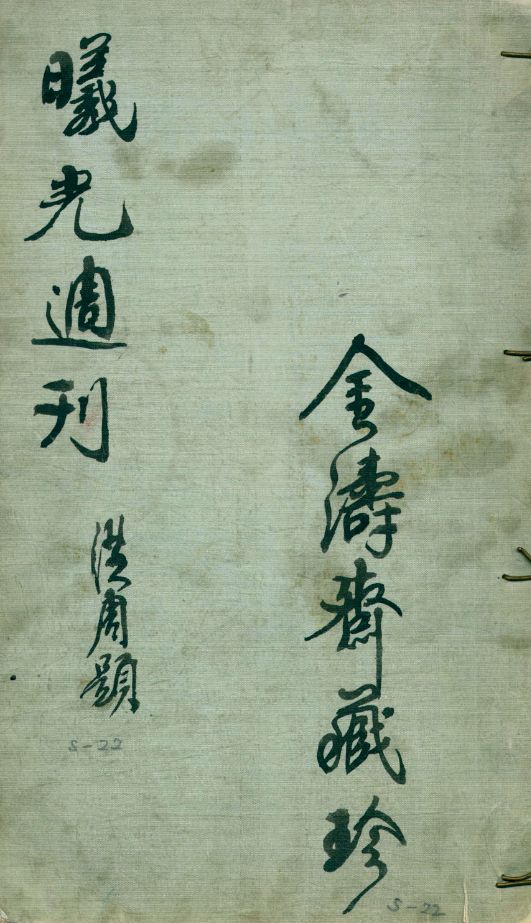 金濤齋藏珍
S-22
曦光週刊
洪周題
S-22